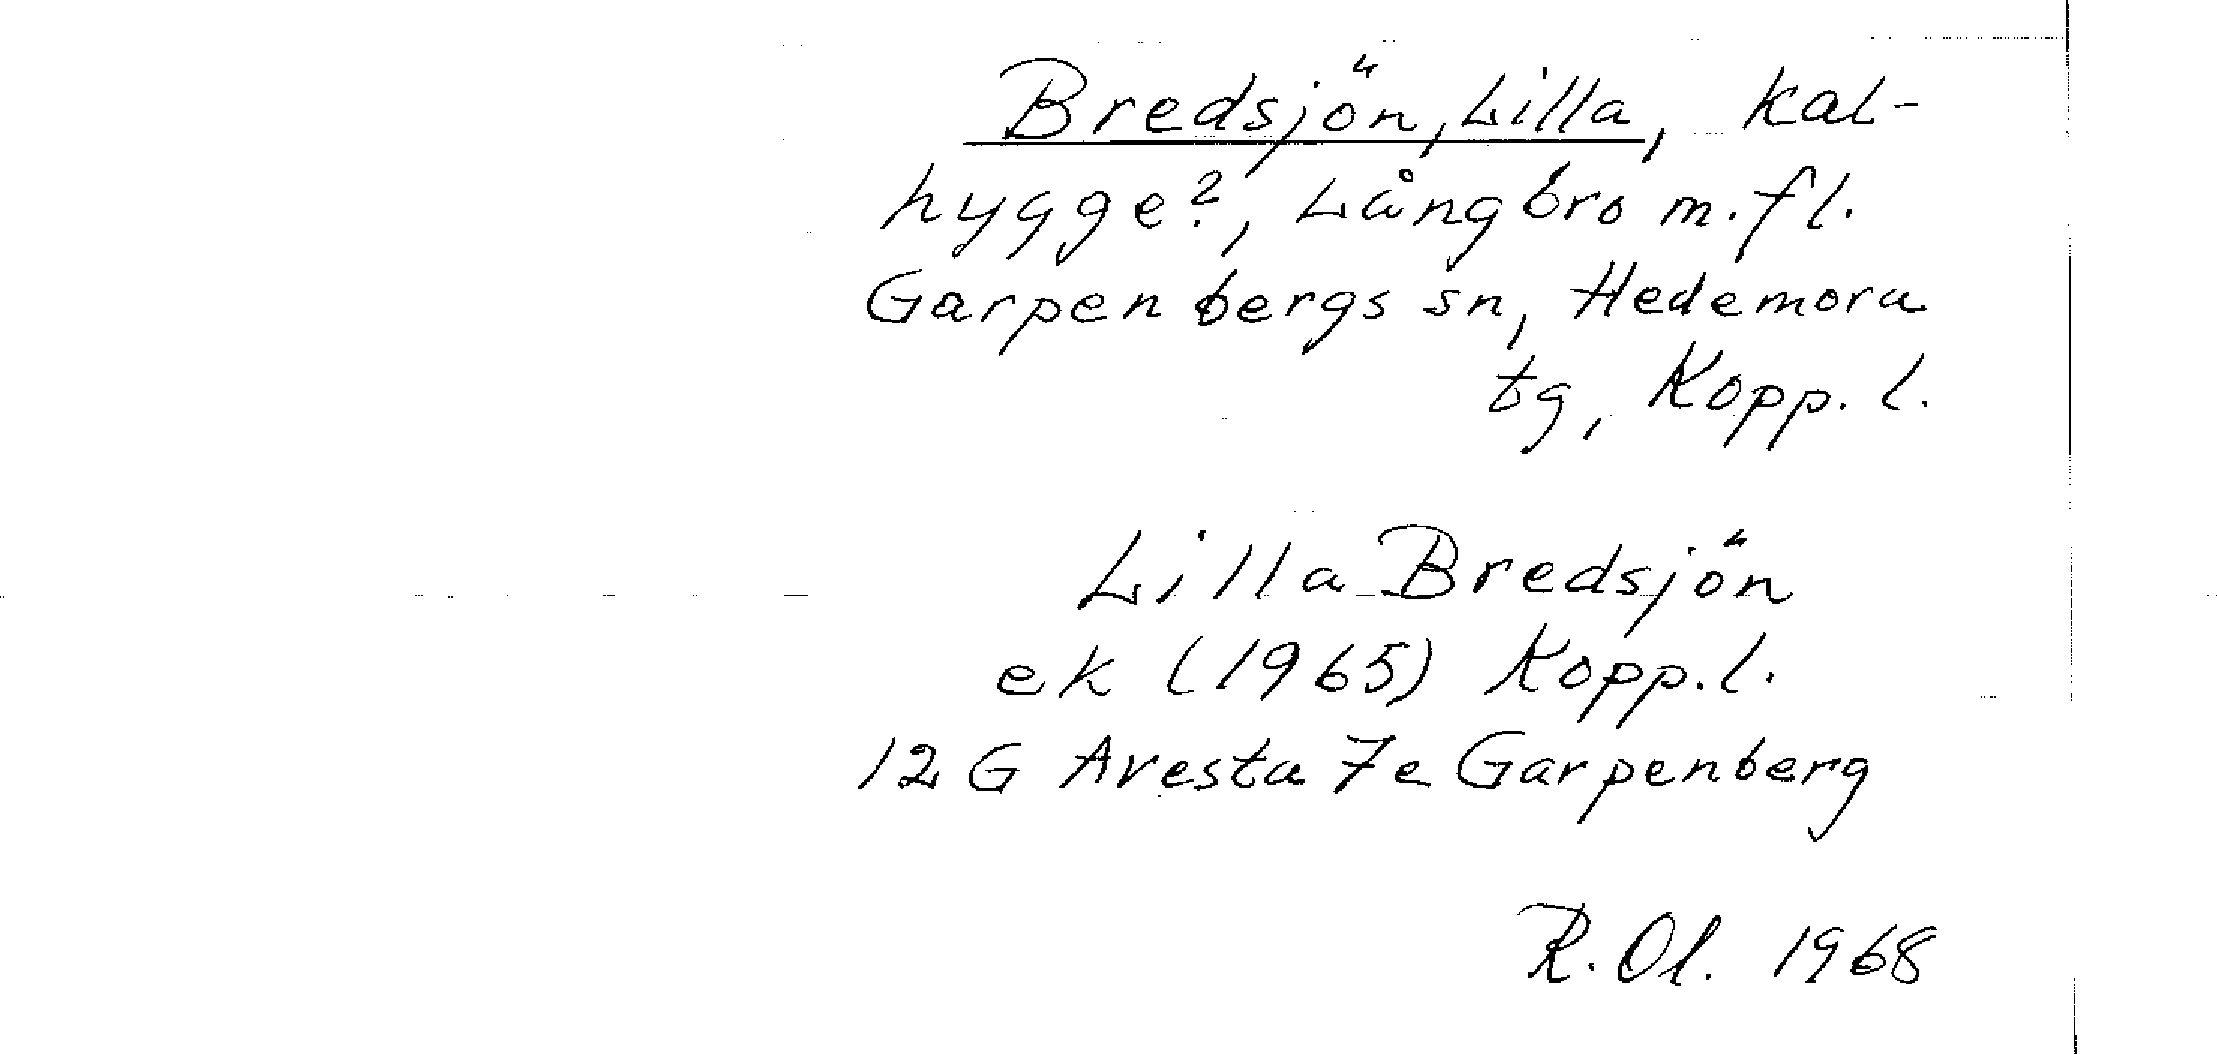 Bredsjön, Lilla, kal-
hygge?, Långbro m.fl.
Garpenbergs sn, Hedemora
tg, Kopp. l.
Lilla Bredsjön
ek (1965) Kopp. l.
12 G Avesta 7e Garpenberg
R. Ol. 1968